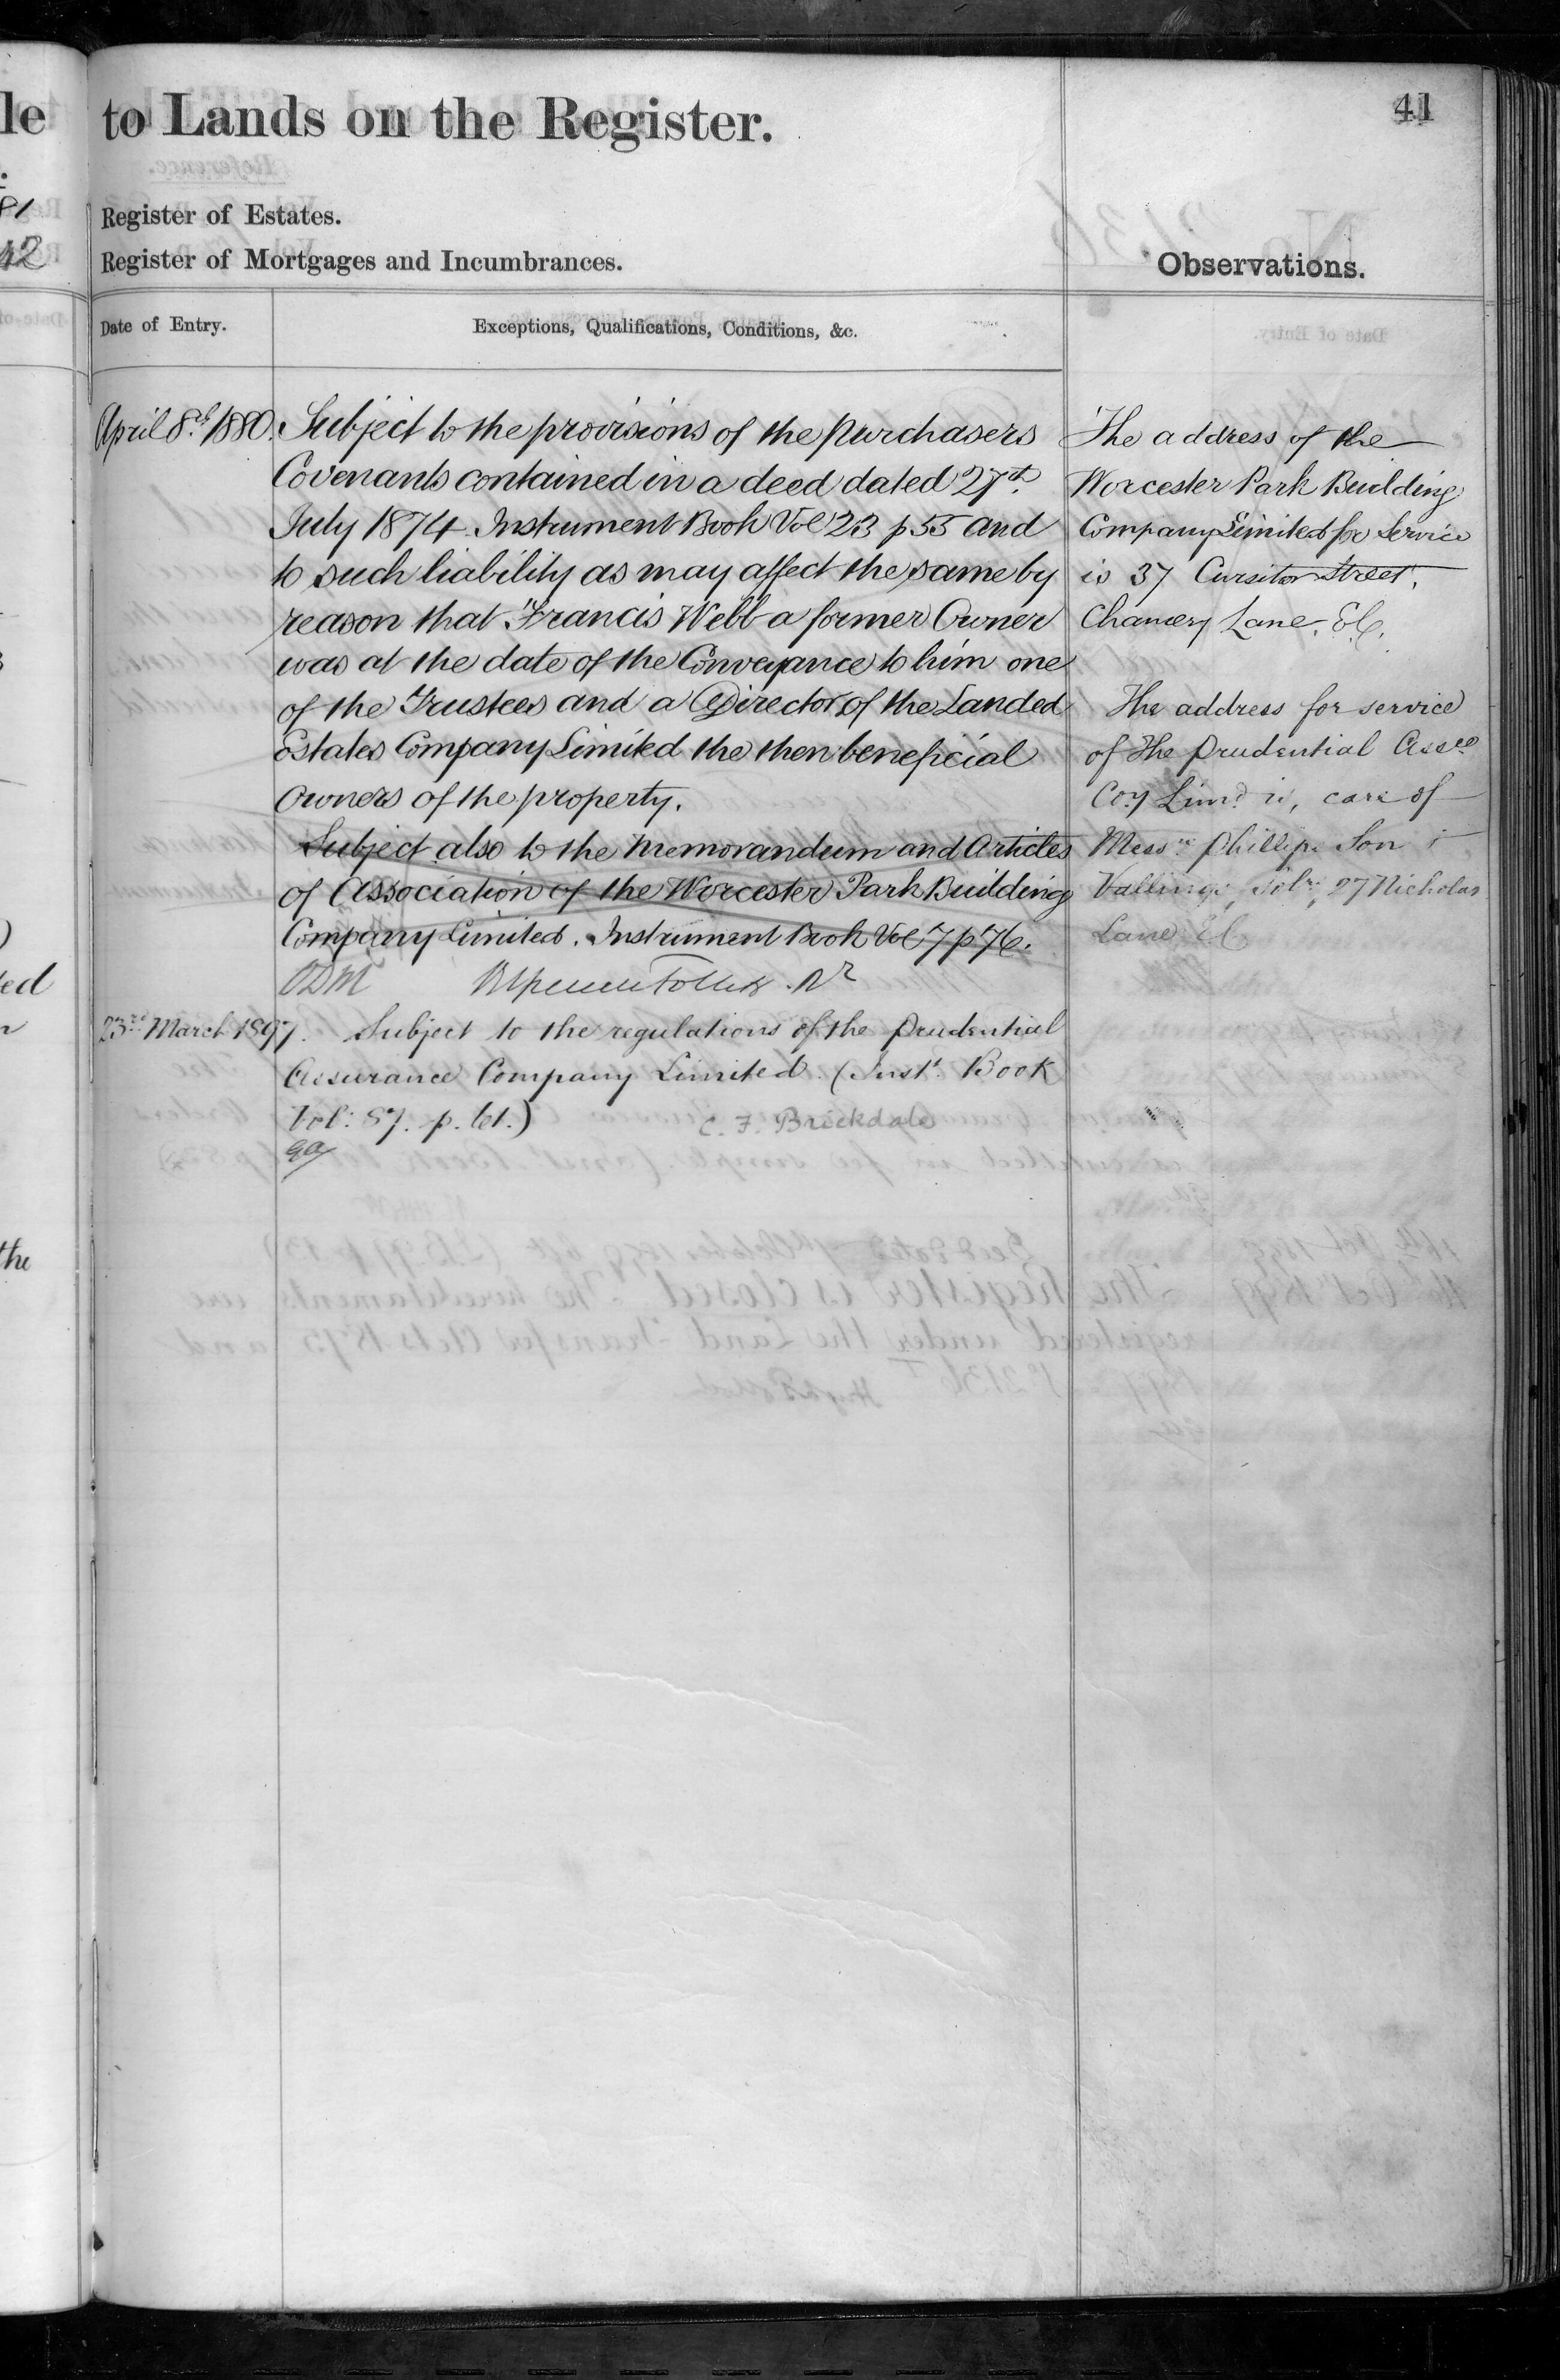 to Lands on the Register.
41
Register of Estates.
Register of Mortgages and Incumbrances.
Observations.
Date of Entry.
Exceptions, Qualifications, Conditions, &c.
April 8th 1880. Subject to the provisions of the purchasers
Covenants contained in a deed dated 27th
July 1874 Instrument Book Vol 23 p 55 and
to such liability as may affect the same by
reason that Francis Webb a former Owner
was at the date of the Conveyance to him one
of the Trustees and a Director of the Landed
Estates Company Limited the then beneficial
Owners of the property.
Subject also to the Memorandum and Articles
of Association of the Worcester Park Building
Company Limited. Instrument Book Vol 7 p 76.
23rd March 1897. Subject to the regulations of the Prudential
Assurance Company Limited. (Inst. Book
Vol: 87. p. 61.)
C. F. Brickdale
The address of the
Worcester Park Building
Company Limited for Service
is 37 Cursitor Street,
Chancery Lane. E.C.
The address for service
of the Prudential Assce
Coy Limd is, care of
Messrs Phillips Son &
Vallings, Solrs, 27 Nicholas
Lane EC
le
81
42
ed
the